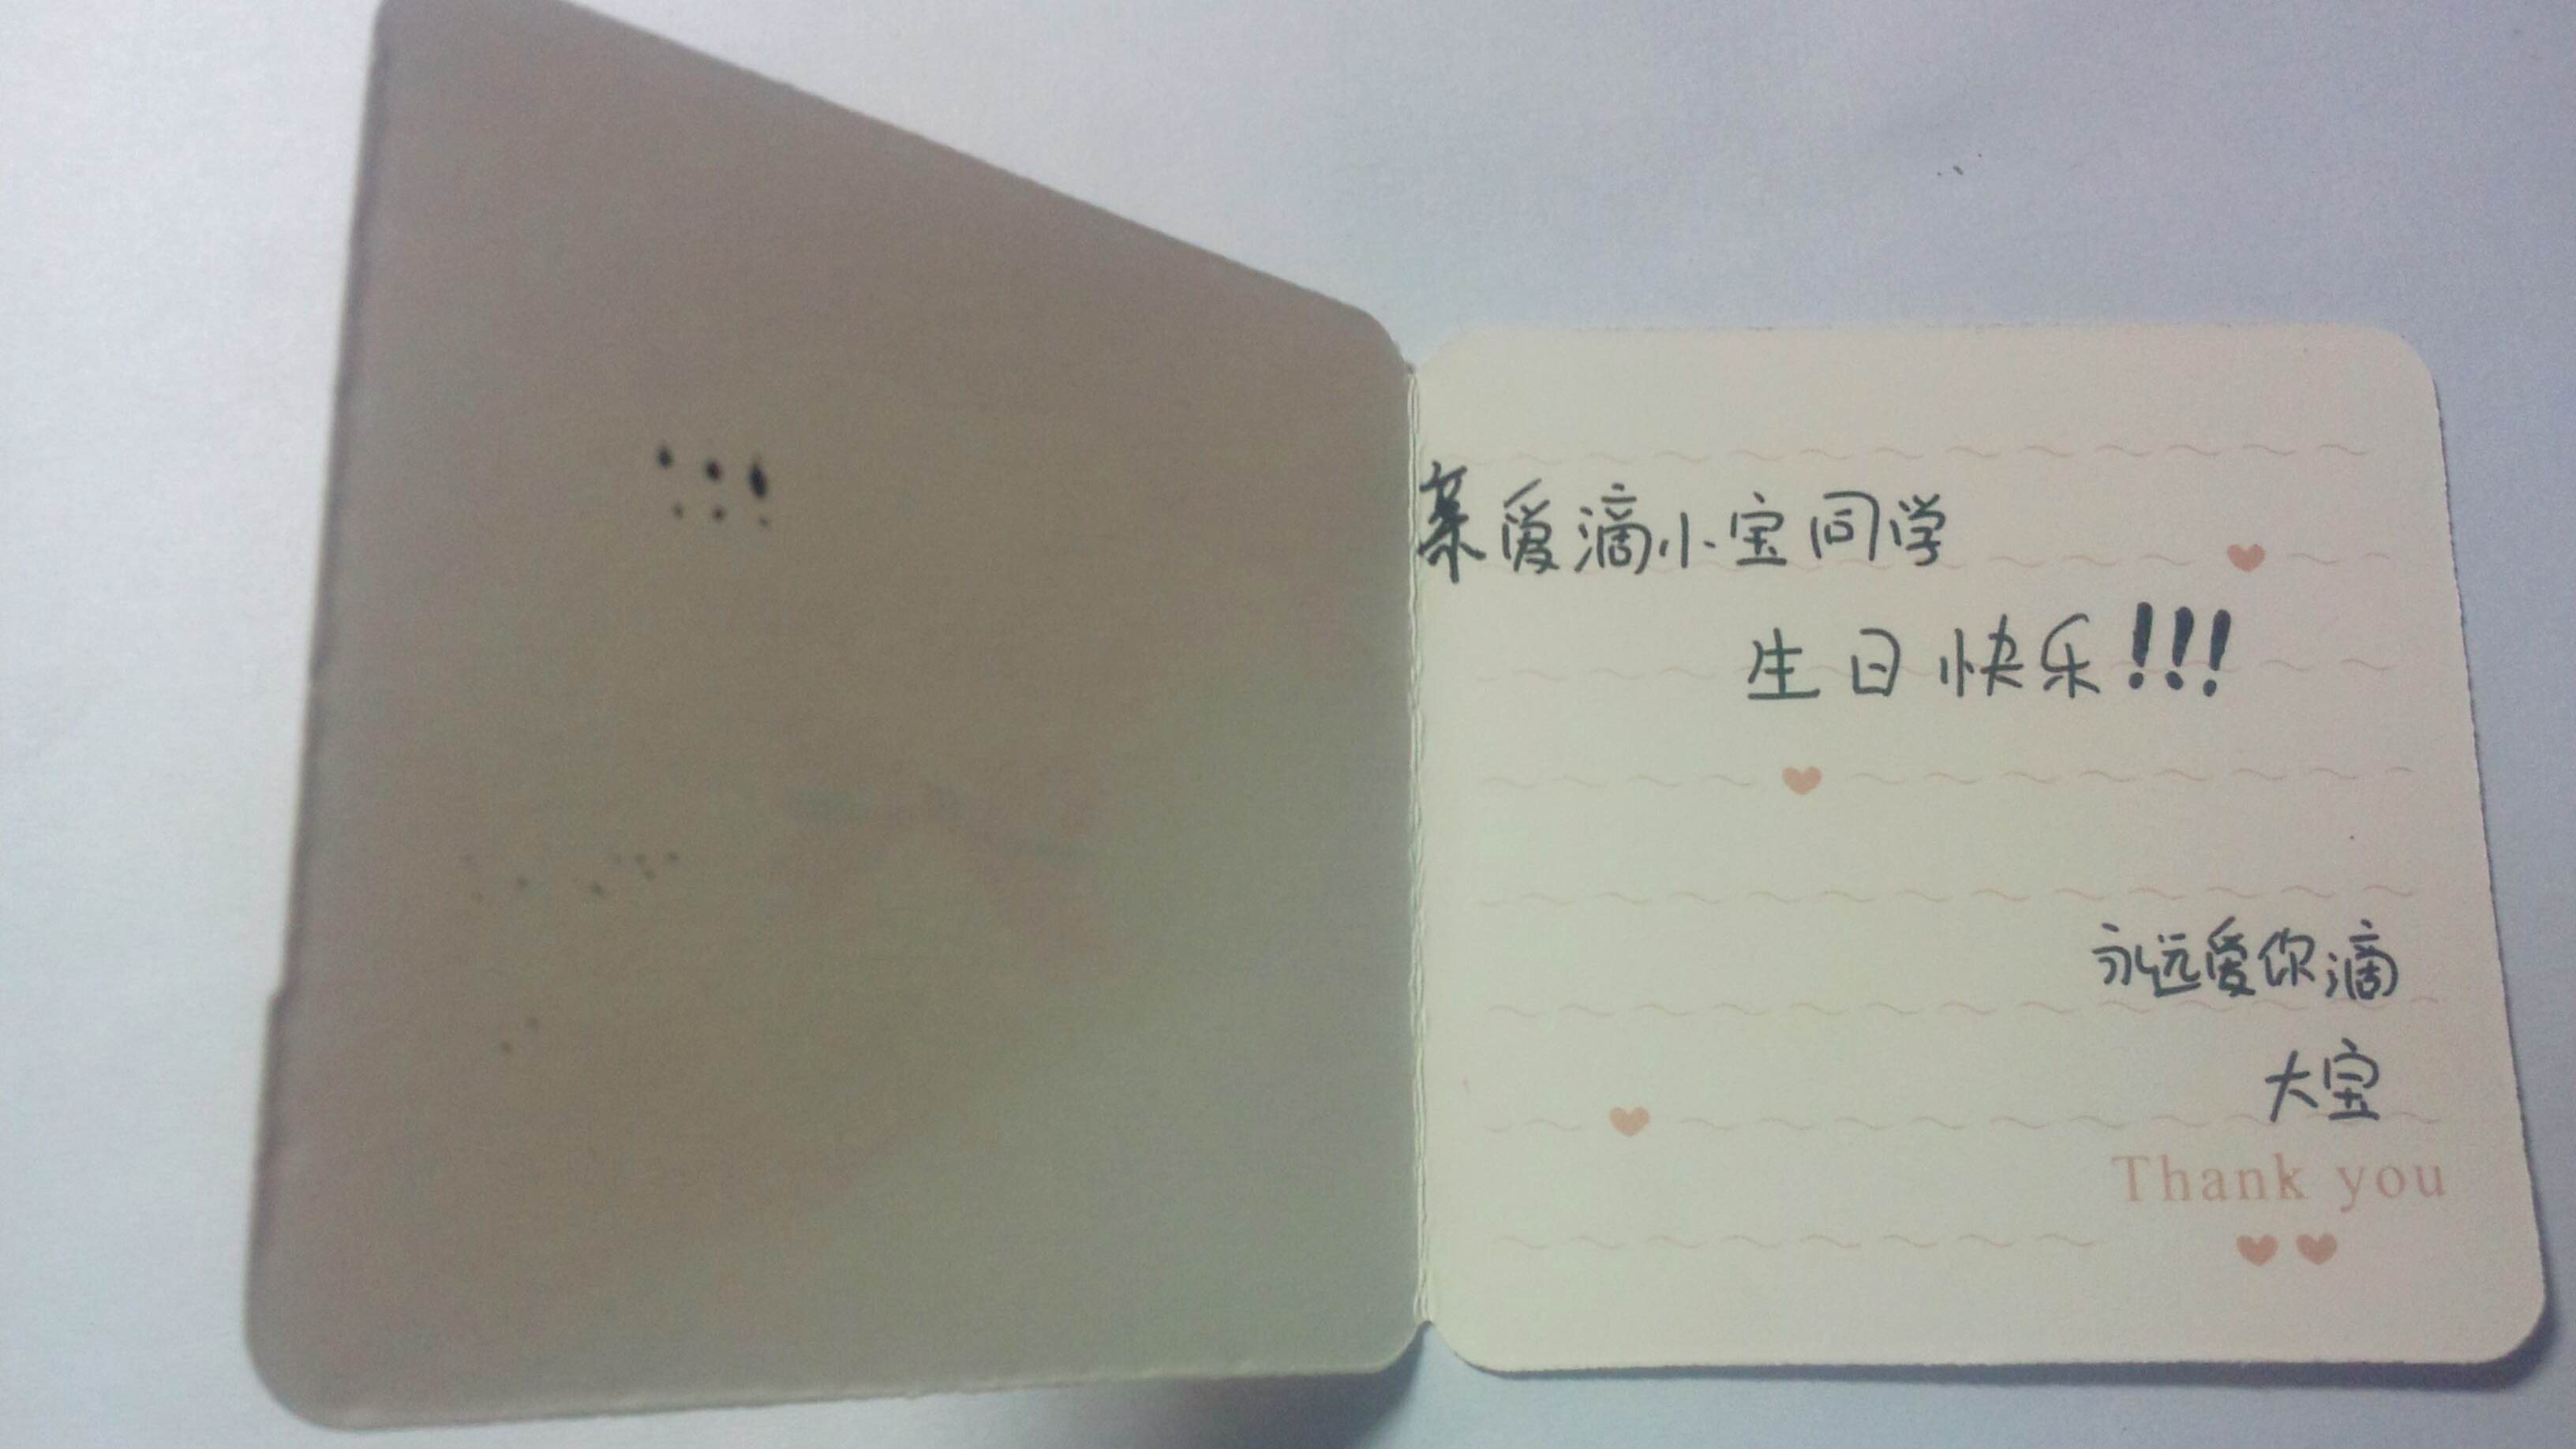 亲爱滴小宝同学
生日快乐!!!
永远爱你滴
大宝
Thank you